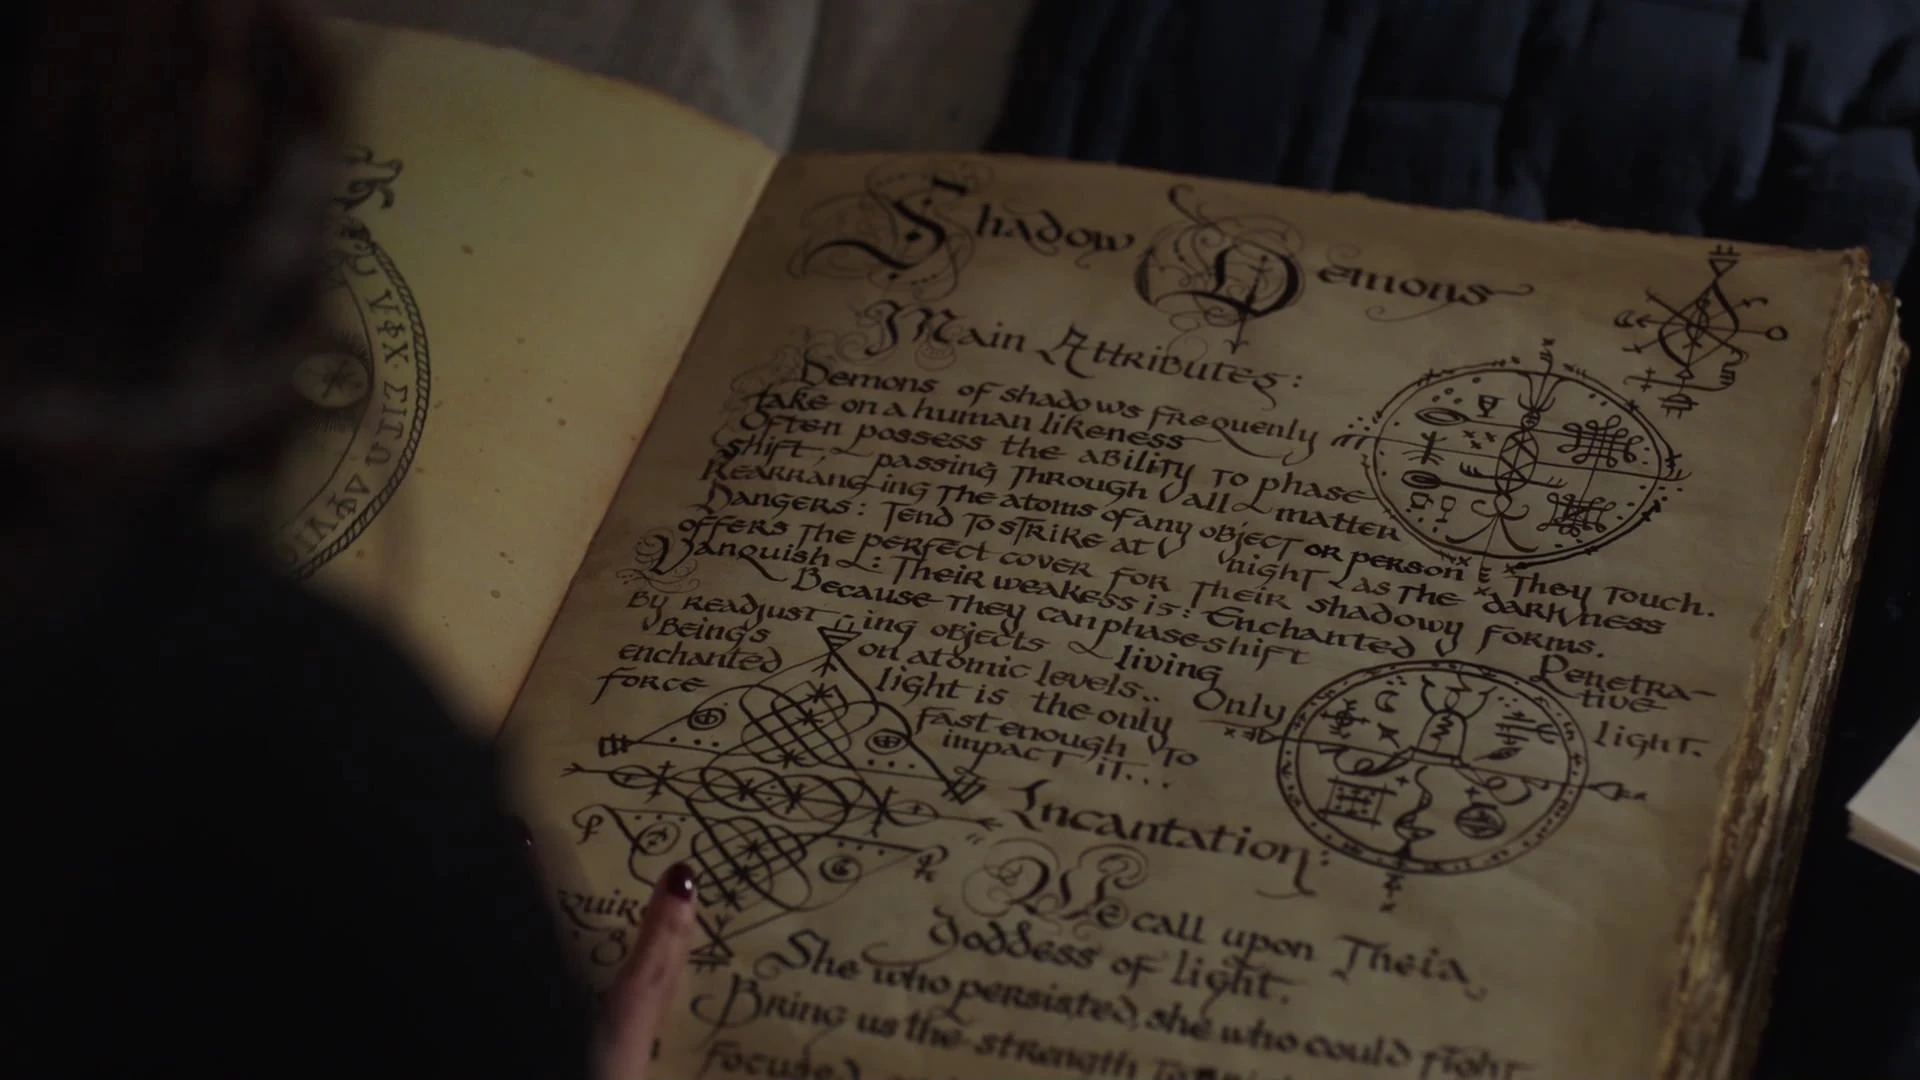 Shadow Demons
Main Attributes:
Demons of shadows frequenly
take on a human likeness
Often possess the ability to phase
shift, passing through all matter
Rearranging the atoms of any object or person they touch.
Dangers: Tend to strike at night as the darkness
offers the perfect cover for their shadowy forms.
Vanquish: Their weakess is: Enchanted Penetrative light.
Because they can phase-shift
By readjusting objects living
Beings on atomic levels.. Only
enchanted light is the only
force fast enough to
impact it...
Incantation:
We call upon Theia,
Goddess of light.
She who persisted, she who could fight
Bring us the strength
focused